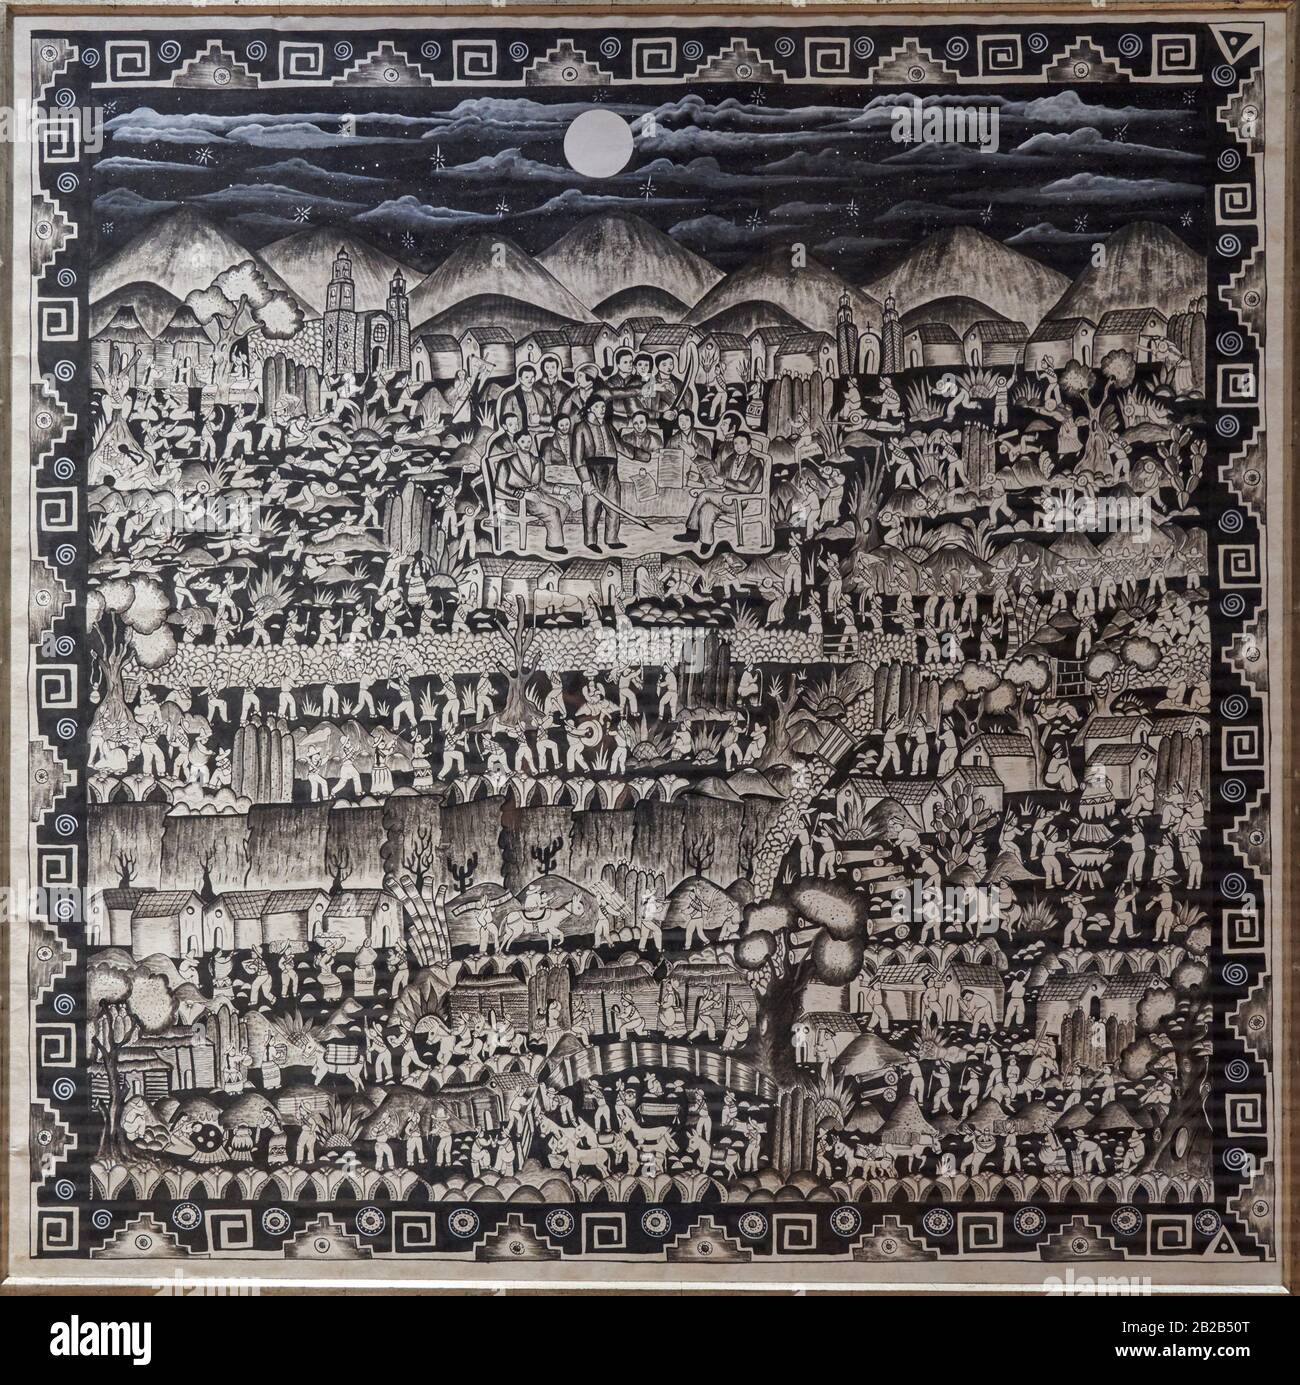 alamy
Image ID: 2B2B50T
www.alamy.com